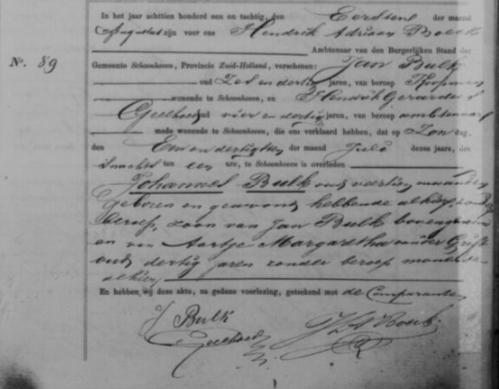 In het jaar achttien honderd een en tachtig, den Eersten der maand
Augustus zijn voor ons Hendrik Adriaan
Ambtenaar van den Burgerlijken Stand der
No. 89
Gemeente Schoonhoven, Provincie Zuid-Holland, verschenen: Jan Bulk
oud Zes en dertig jaren, van beroep Koopman
wonende te Schoonhoven, en Hendrik Gerardus
Geelhoed oud vier en dertig jaren, van beroep ambtenaar
mede wonende te Schoonhoven, die ons verklaard hebben, dat op Zondag
den Een en dertigsten der maand Juli dezes jaars, des
snachts ten een ure, te Schoonhoven is overleden
Johannes Bulk oud veertien maanden
geboren en gewoond hebbende alhier, zonder
beroep, zoon van Jan Bulk bovengenoemd
en van Aartje Margaretha van der
oud dertig jaren zonder beroep wonende
alhier
En hebben wij deze akte, na gedane voorlezing, geteekend met de Comparanten
J Bulk
Geelhoed